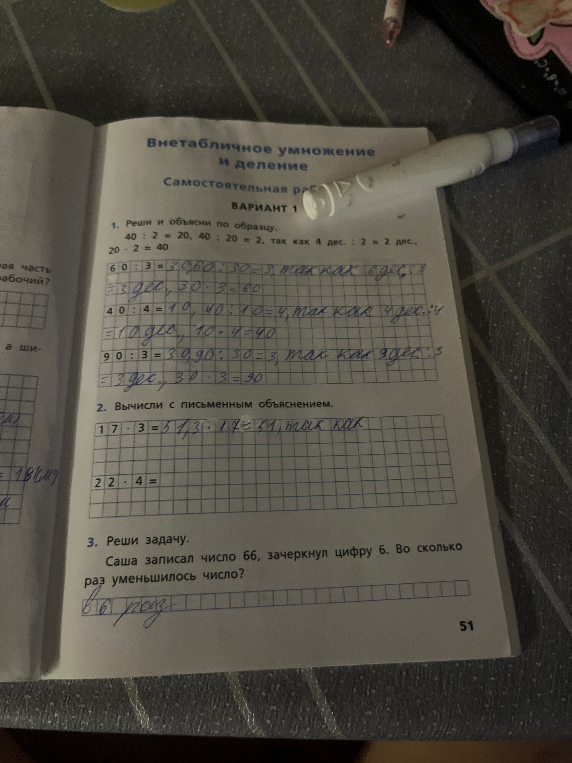 Внетабличное умножение
и деление
Самостоятельная раб
ВАРИАНТ 1
1. Реши и объясни по образцу.
40 : 2 = 20, 40 : 20 = 2, так как 4 дес. : 2 = 2 дес.,
20 · 2 = 40
60:3=30,60:30=3, так как 6 дес.:3
=3 дес., 30·3=60
40:4=10, 40:10=4, так как 4 дес.:4
=10 дес., 10·4=40
90:3=30,90:30=3, так как 9 дес.:3
=3 дес., 30·3=90
2. Вычисли с письменным объяснением.
17·3=51,3·17=51, так как
22·4=
3. Реши задачу.
Саша записал число 66, зачеркнул цифру 6. Во сколько
раз уменьшилось число?
в 6 раз
51
ая часть
рабочий?
а ши-